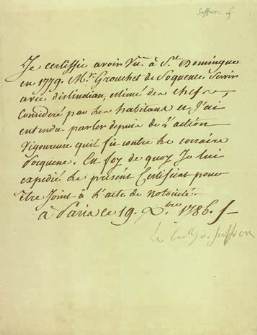 Suffren
Je certiffie avoir vu à St Domingue
en 1779 Mr Grouchet de Soquence Servir
avec distinction, estimé des chefs
consideré par les habitans et J'ai
entendu parler depuis de l'action
Vigoureuse quil fit contre le corsaire
En foy de quoy Je lui
expedié le present Certificat pour
être Joint à l'acte de notorieté
à Paris ce 19. Xbre 1786.
Le Bailly de Suffren